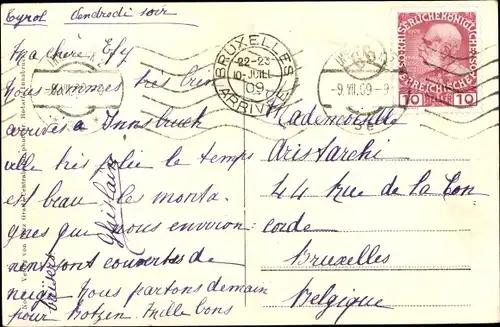 Tyrol Vendredi soir
Ma chère Efy
Nous sommes très bien
arrivés à Innsbruck
ville très jolie le temps
est beau, les monta
gnes que nous environ
nent sont couvertes de
neige Nous partons demain
pour Botzen. Mille bons
baisers
Ghislain
BRUXELLES
22-23
10-JUIL
09
ARRIVÉE
-9.VII.09-9
KAISERLICHE KÖNIGLICHE
ÖSTERREICHISCHE
10 HELLER 10
Mademoiselle
Aristarchi
44 Rue de la Con
corde
Bruxelles
Belgique